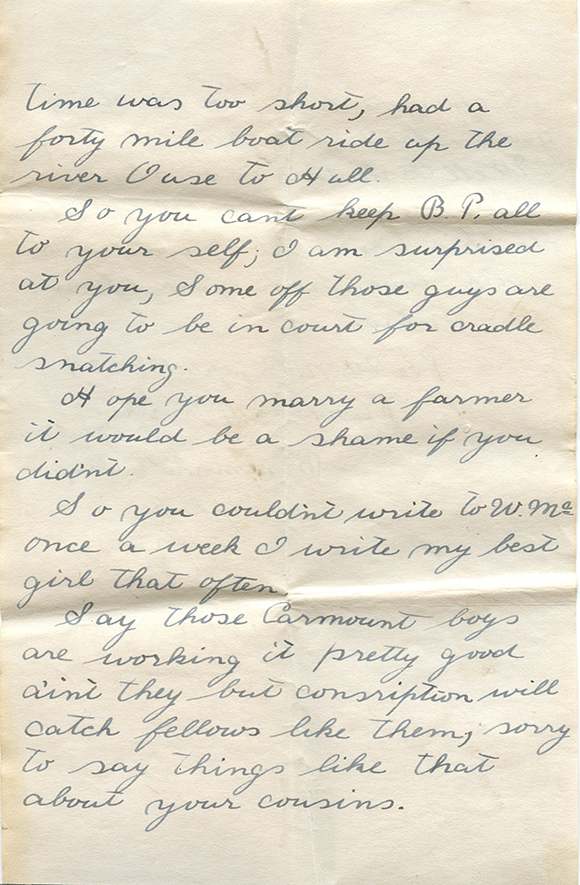 time was too short, had a
forty mile boat ride up the
river Ouse to Hull.
So you cant keep B.P. all
to your self; I am surprised
at you, Some off those guys are
going to be in court for cradle
snatching.
Hope you marry a farmer
it would be a shame if you
didn't.
So you couldn't write to W. Mc
once a week I write my best
girl that often.
Say those Carmount boys
are working it pretty good
ain't they but consription will
catch fellows like them, sorry
to say things like that
about your cousins.